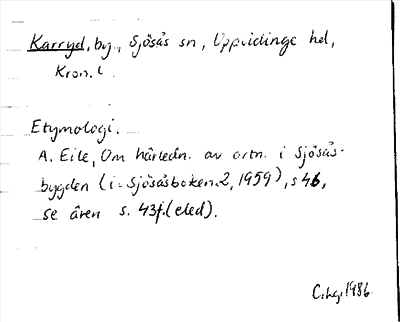 Karryd, by, Sjösås sn, Uppvidinge hd,
Kron. l.
Etymologi.
A. Eile, Om härledn. av ortn. i Sjösås-
bygden (i: Sjösåsboken 2, 1959), s 46,
se även s. 43f. (eled).
C.Lg. 1986